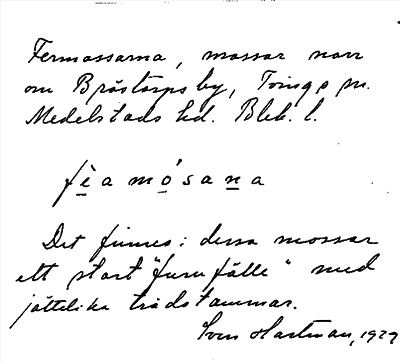 Fermossarna, mossar norr
om Bröstorps by, Tvings sn.
Medelstads hd. Blek. l.
fèamósana
Det finnes i dessa mossar
ett stort "furufälle" med
jättelika trädstammar.
Sven Hartman, 1929